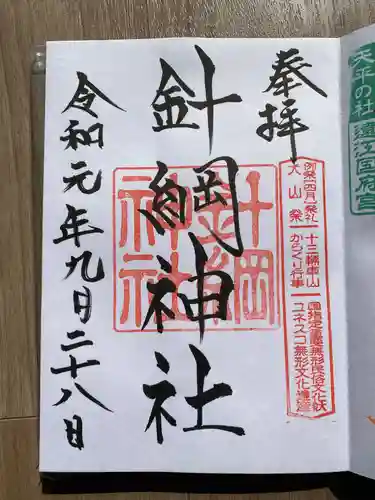 天平の社 遠江国府宮
奉拝
例祭(四月)祭礼
犬山祭
十三輛車山
からくり行事
国指定重要無形民俗文化財
ユネスコ無形文化遺産
針綱神社
針綱
神社
令和元年九日二十八日